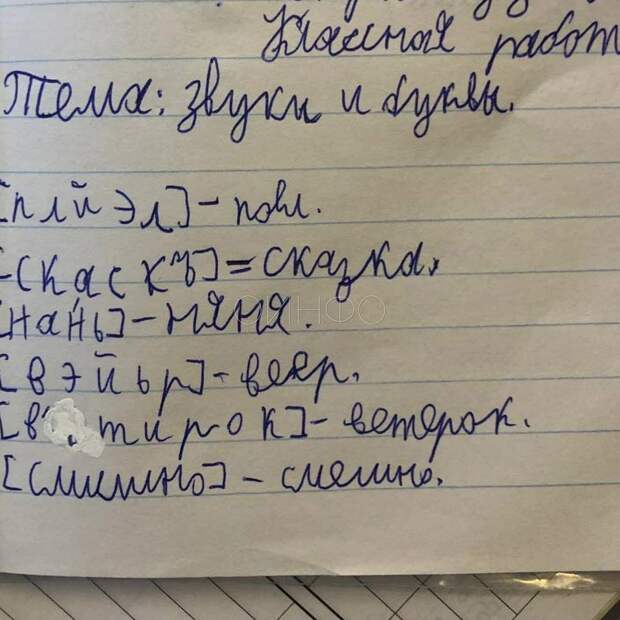 Классная работ
Тема: звуки и буквы.
[плйэл] - повл.
[каскъ] = сказка.
[нань] - няня.
[вэйьр] - веяр.
[в' тирок] - ветерок.
[смишно] - смешно.